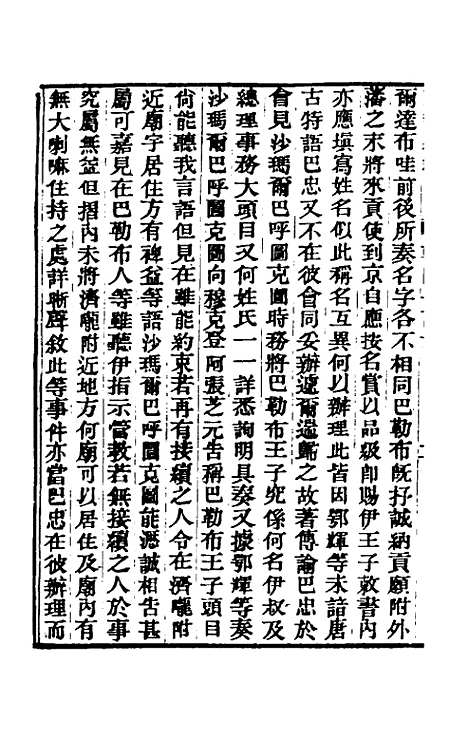 爾達布哇前後所奏名字各不相同巴勒布旣抒誠納貢願附外
藩之末將來貢使到京自應按名賞以品級卽賜伊王子敕書內
亦應填寫姓名似此稱名互異何以辦理此皆因鄂輝等未諳唐
古特語巴忠又不在彼會同妥辦遽爾過觕之故著傳諭巴忠於
會見沙瑪爾巴呼圖克圖時務將巴勒布王子究係何名伊叔及
總理事務大頭目又何姓氏一一詳悉詢明具奏又據鄂輝等奏
沙瑪爾巴呼圖克圖向穆克登阿張芝元告稱巴勒布王子頭目
尙能聽我言語但見在雖能約束若再有接續之人令在濟嚨附
近廟宇居住方有裨益等語沙瑪爾巴呼圖克圖能憑誠相吿甚
屬可嘉見在巴勒布人等雖聽伊指示當敎若無接續之人於事
究屬無益但摺內未將濟嚨附近地方何廟可以居住及廟內有
無大喇嘛住持之處詳晰聲敘此等事件亦當巴忠在彼辦理而